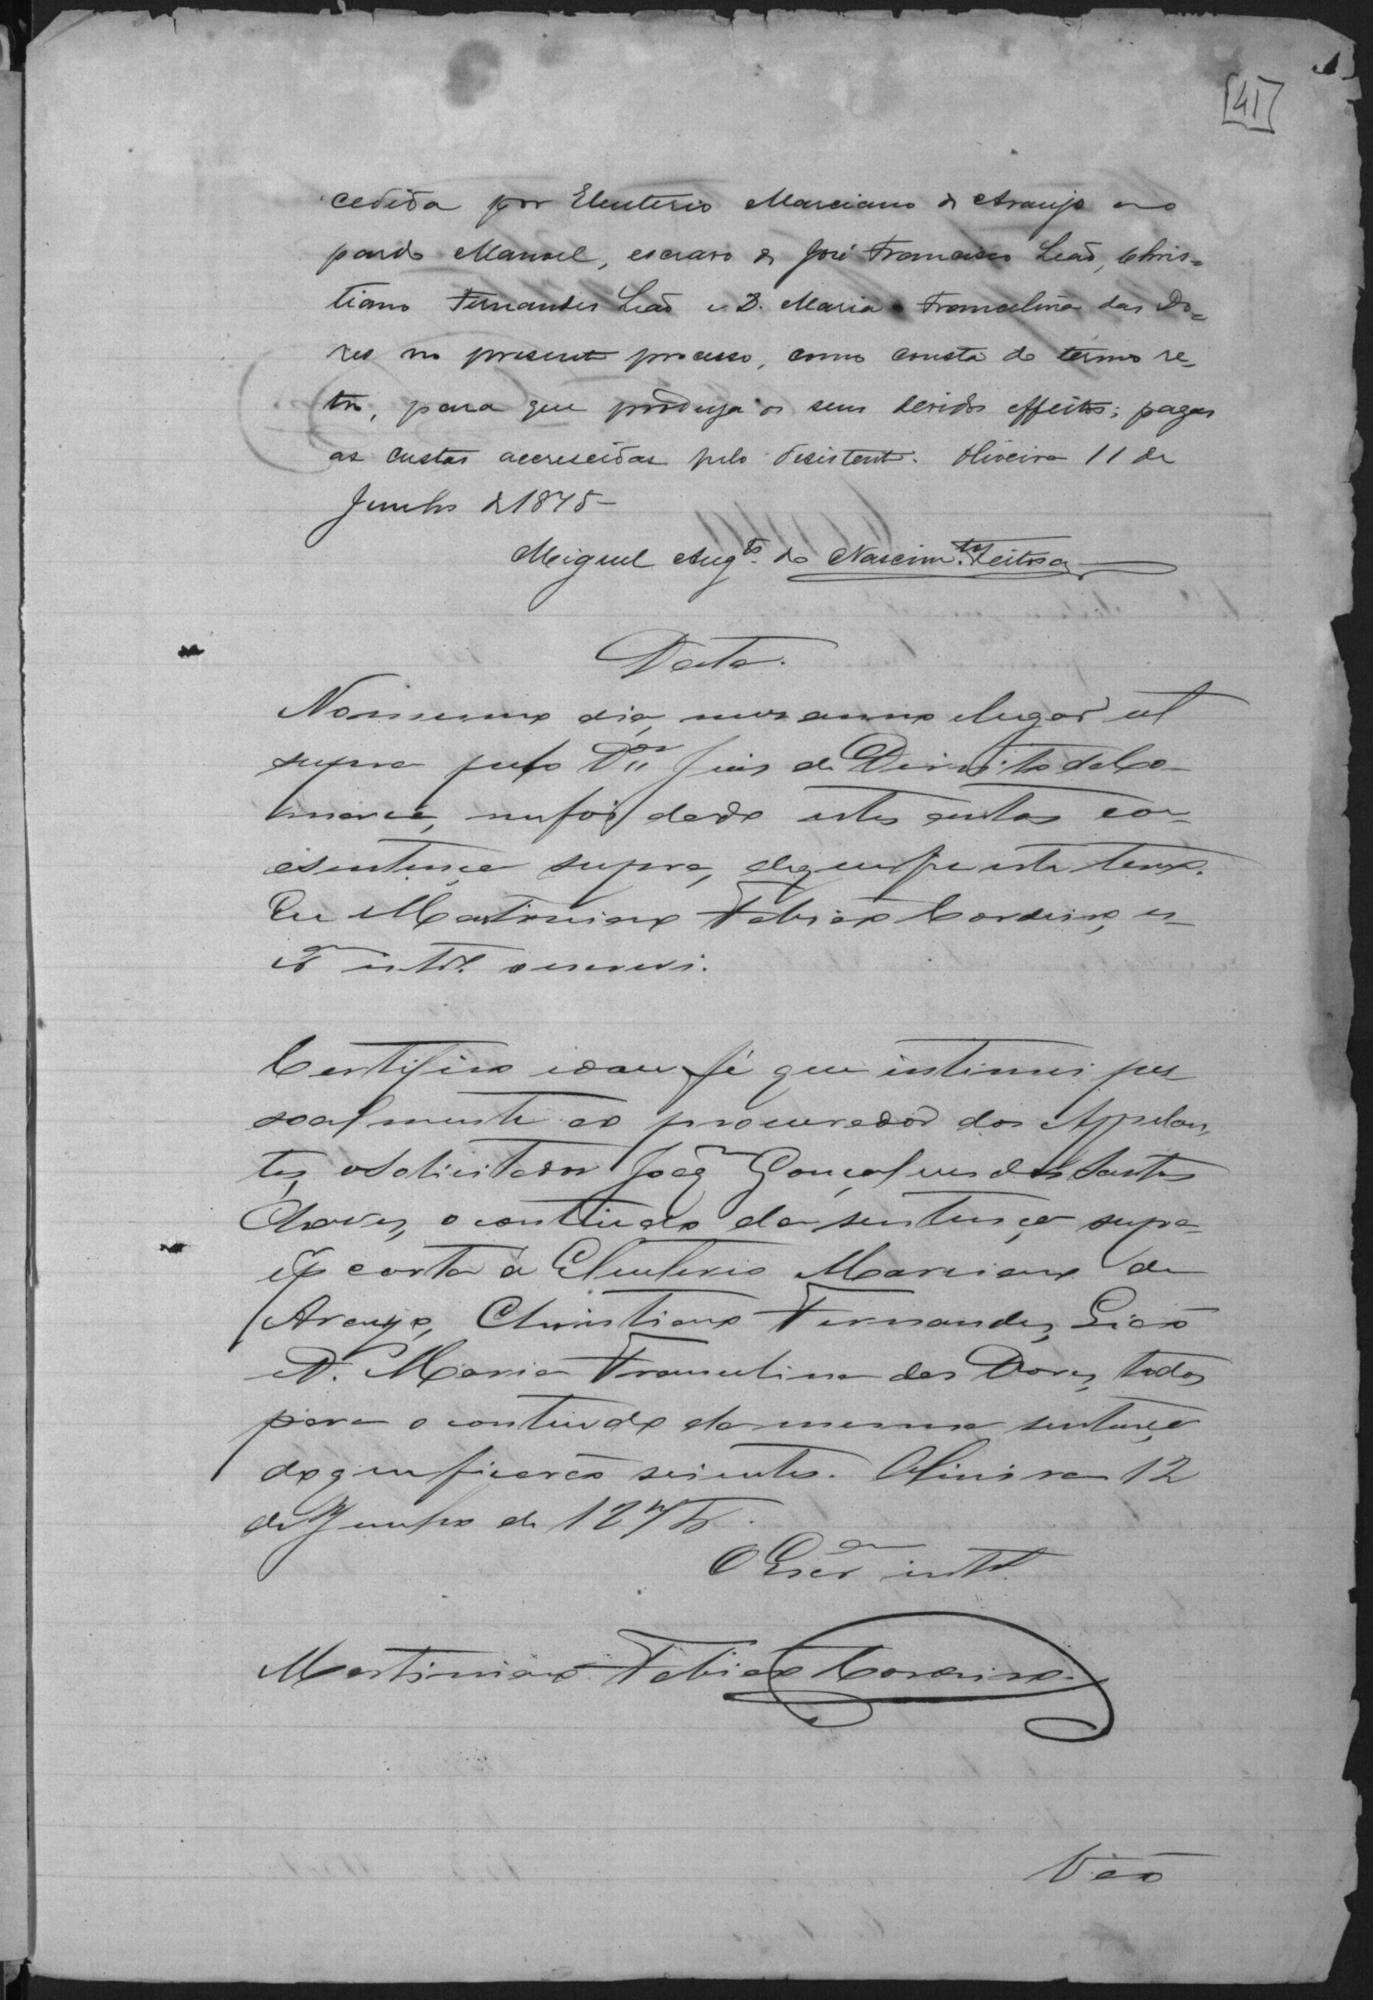 [41]
cedida por Eleuterio Marciano de Araujo ao
pardo Manoel, escravo de José Francisco Leão, Chris=
tiano Fernandes Leão e D. Maria Francelina das Do=
res no presente processo, como consta do termo re=
tro, para que produza os seus devidos effeitos; pagas
as custas accrescidas pelo desistente. Oliveira 11 de
Junho de 1875 –
Miguel Aug.to do Nascim.to Feitosa
Data.
No mesmo dia, mez anno e lugar ut
supra pelo D.or Juiz de Direito da Co-
marca, me foi dado estes autos com
a sentença supra, do que faço este termo.
Eu Martiniano Tobias Cordeiro, es-
cr.am int.º o escrevi.
Certifico e dou fé que intimei pes
soalmente ao procurador dos Appelan-
tes, o Solicitador Joaq.m Gonçalves dos Santos
Chaves, o contiudo da sentença supra
e p carta a Eleuterio Marciano de
Araujo, Christiano Fernandes Leão
e D. Maria Francelina das Dores, todos
para o contiudo da mesma sentença
do que ficarão scientes. Oliveira 12
de Junho de 1875.
O Escr.am int.º
Martiniano Tobias Cordeiro.
Vão